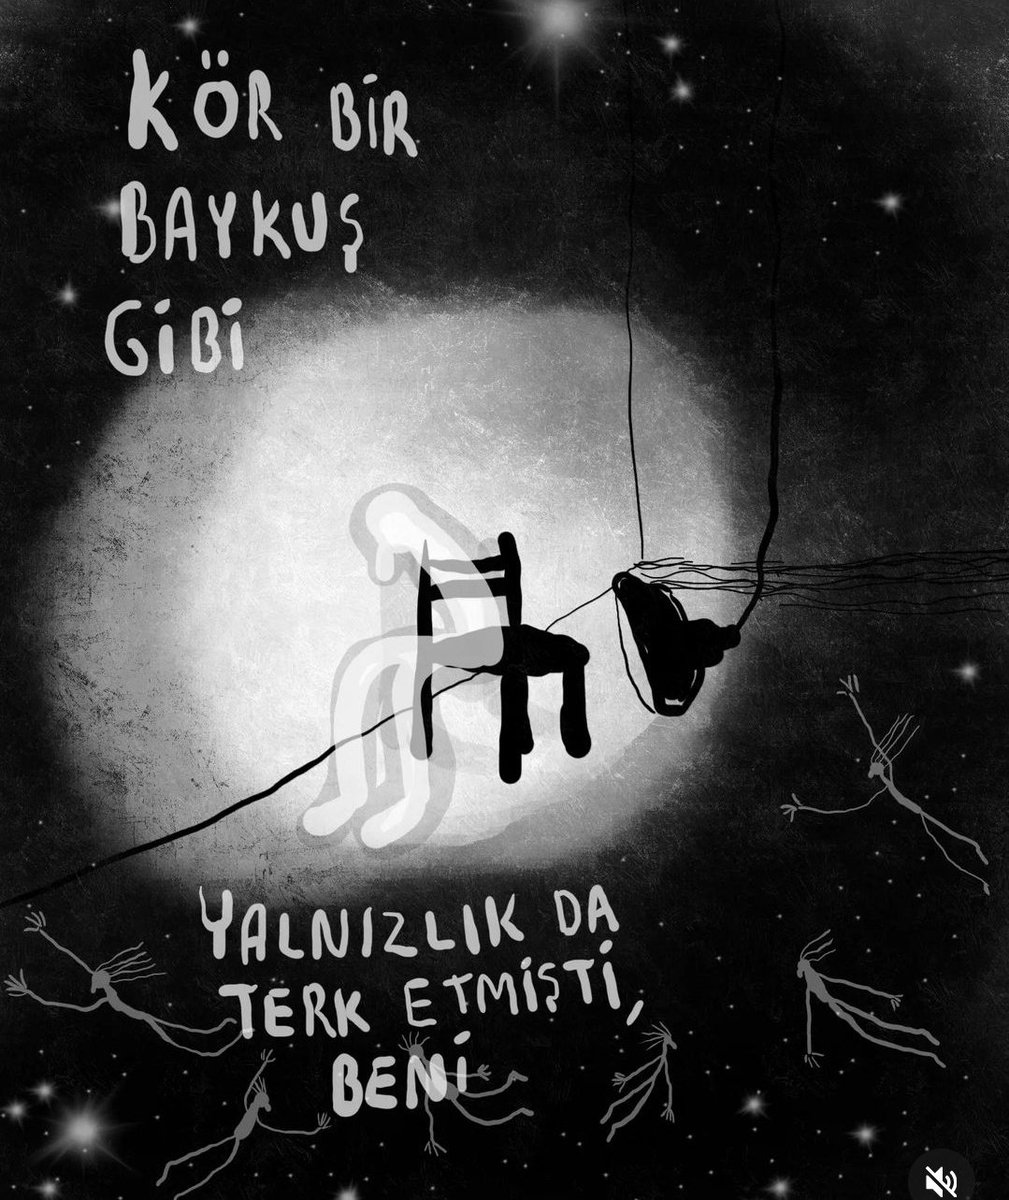 KÖR BİR
BAYKUŞ
GİBİ
YALNIZLIK DA
TERK ETMİŞTİ,
BENİ